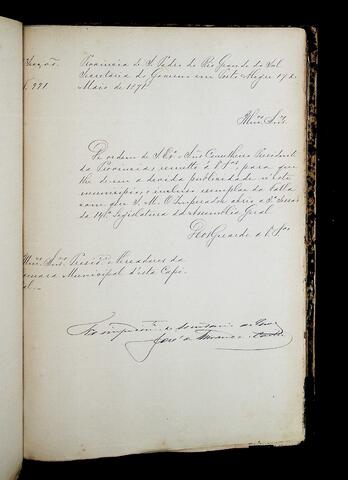 Provincia de S. Pedro do Rio Grande do Sul
Secretaria do Governo em Porto Alegre 17 de
Maio de 1871
Illmos Snrs.
De ordem de S. Exª o Snr Conselheiro Presidente
da Provincia remetto a V. Sas para que
lhe dem a devida publicidade n'este
municipio, o incluso exemplar da falla
com que S. M. O Imperador abrio a 3ª Sessão
da 14ª Legislatura da Assembléa Geral
Deos Guarde a V. Sas
Snrs. Presidte e Vereadores da
Camara Municipal d'esta Capi
tal